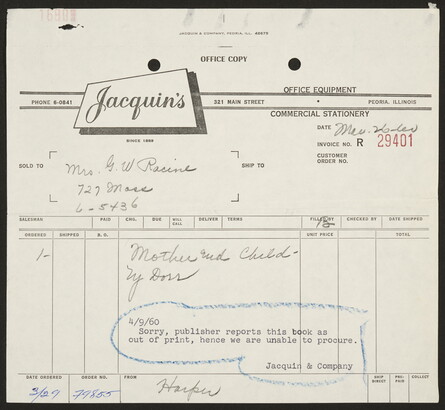 JACQUIN & COMPANY, PEORIA, ILL.
OFFICE COPY
OFFICE EQUIPMENT
Jacquin's
PHONE 6-0841
321 MAIN STREET
PEORIA, ILLINOIS
COMMERCIAL STATIONERY
SINCE 1889
DATE
INVOICE NO. R 29401
CUSTOMER
ORDER NO.
SOLD TO
SHIP TO
Mrs. G. W Racine
727 Moss
6-5436
SALESMAN PAID CHG. DUE WILL CALL DELIVER TERMS FILLED BY CHECKED BY DATE SHIPPED
ORDERED SHIPPED B. O. UNIT PRICE TOTAL
1- Mother and Child-
4/9/60
Sorry, publisher reports this book as
out of print, hence we are unable to procure.
Jacquin & Company
DATE ORDERED ORDER NO. FROM SHIP DIRECT PRE-PAID COLLECT
3/29 79855 Harper